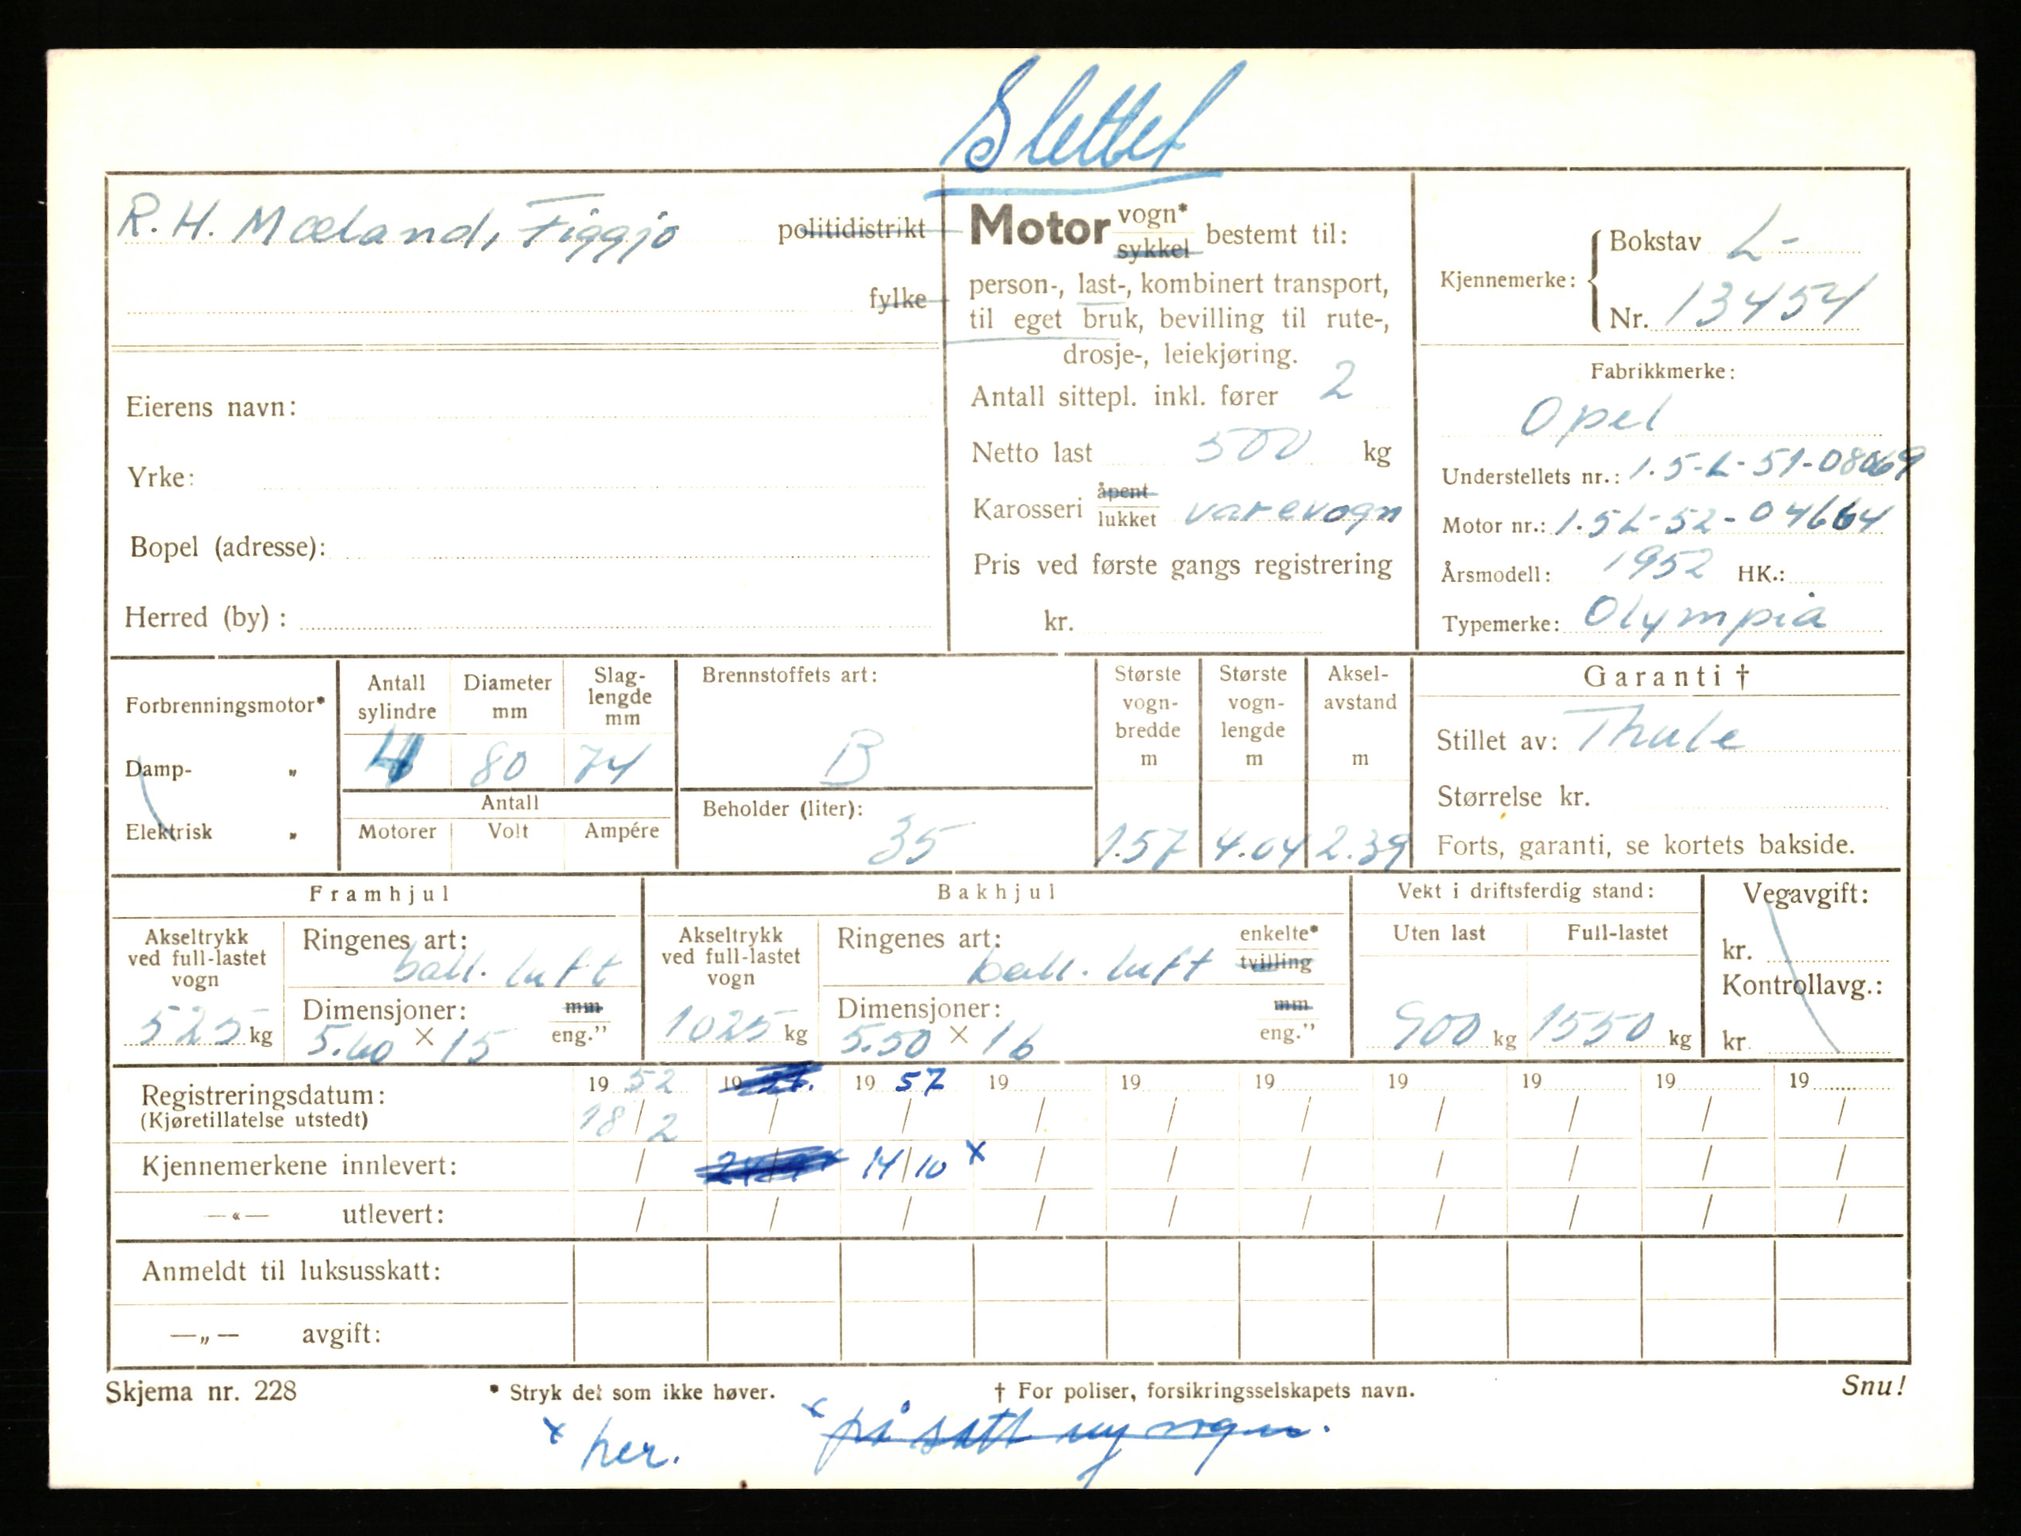 Slettet
R. H. Mæland, Figgjo politidistrikt
fylke
Eierens navn:
Yrke:
Bopel (adresse):
Herred (by) :
Motor vogn* sykkel bestemt til:
person-, last-, kombinert transport,
til eget bruk, bevilling til rute-,
drosje-, leiekjøring.
Antall sittepl. inkl. fører 2
Netto last 500 kg
Karosseri åpent lukket varevogn
Pris ved første gangs registrering
kr.
Kjennemerke: Bokstav L-
Nr. 13454
Fabrikkmerke:
Opel
Understellets nr.: 1.5-L-51-08069
Motor nr.: 1.5L-52-04664
Årsmodell: 1952 HK.:
Typemerke: Olympia
Forbrenningsmotor*
Damp- „
Elektrisk „
Antall sylindre 4
Diameter mm 80
Slag-lengde mm 74
Antall
Motorer Volt Ampére
Brennstoffets art:
B
Beholder (liter):
35
Største vogn-bredde m 1.57
Største vogn-lengde m 4.04
Aksel-avstand m 2.39
Garanti †
Stillet av: Thule
Størrelse kr.
Forts, garanti, se kortets bakside.
Framhjul
Akseltrykk ved full-lastet vogn
525 kg
Ringenes art:
ball. luft
Dimensjoner: mm
5.60 × 15 eng.”
Bakhjul
Akseltrykk ved full-lastet vogn
1025 kg
Ringenes art: enkelte* tvilling
ball. luft
Dimensjoner: mm
5.50 × 16 eng.”
Vekt i driftsferdig stand:
Uten last Full-lastet
900 kg 1550 kg
Vegavgift:
kr.
Kontrollavg.:
kr.
Registreringsdatum: 19 52 19 19 57 19 19 19 19 19 19 19
(Kjøretillatelse utstedt) 18/2 / / / / / / / / /
Kjennemerkene innlevert: / / 14/10 x / / / / / / /
—«— utlevert: / / / / / / / / / /
Anmeldt til luksusskatt:
—„— avgift:
Skjema nr. 228 * Stryk det som ikke høver. † For poliser, forsikringsselskapets navn. Snu!
x her. x på satt ny vogn.